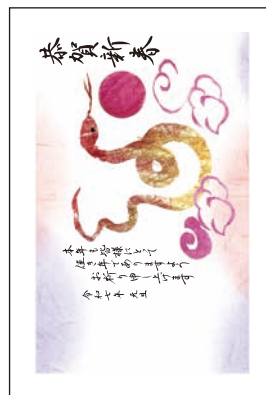 恭賀新春
本年も皆様にとって
佳き年でありますよう
お祈り申し上げます
令和七年 元旦